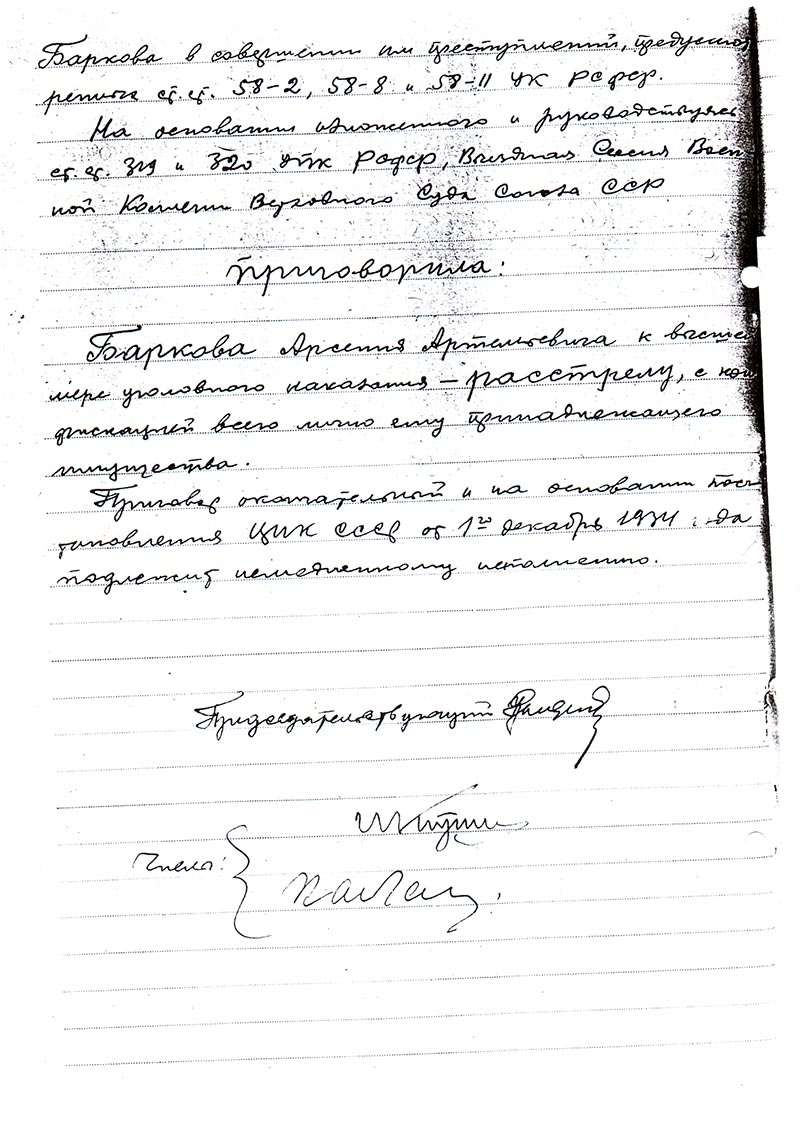 Баркова в совершении им преступлений, предусмот
ренных ст.ст. 58-2, 58-8 и 58-11 УК РСФСР.
На основании изложенного и руководствуясь
ст.ст. 319 и 320 УПК РСФСР, Выездная Сессия Воен
ной Коллегии Верховного Суда Союза ССР
приговорила:
Баркова Арсения Артемьевича к высшей
мере уголовного наказания – расстрелу, с кон
фискацией всего лично ему принадлежащего
имущества.
Приговор окончательный и на основании пос
тановления ЦИК СССР от 1го декабря 1934 года
подлежит немедленному исполнению.
Председательствующий
Члены: